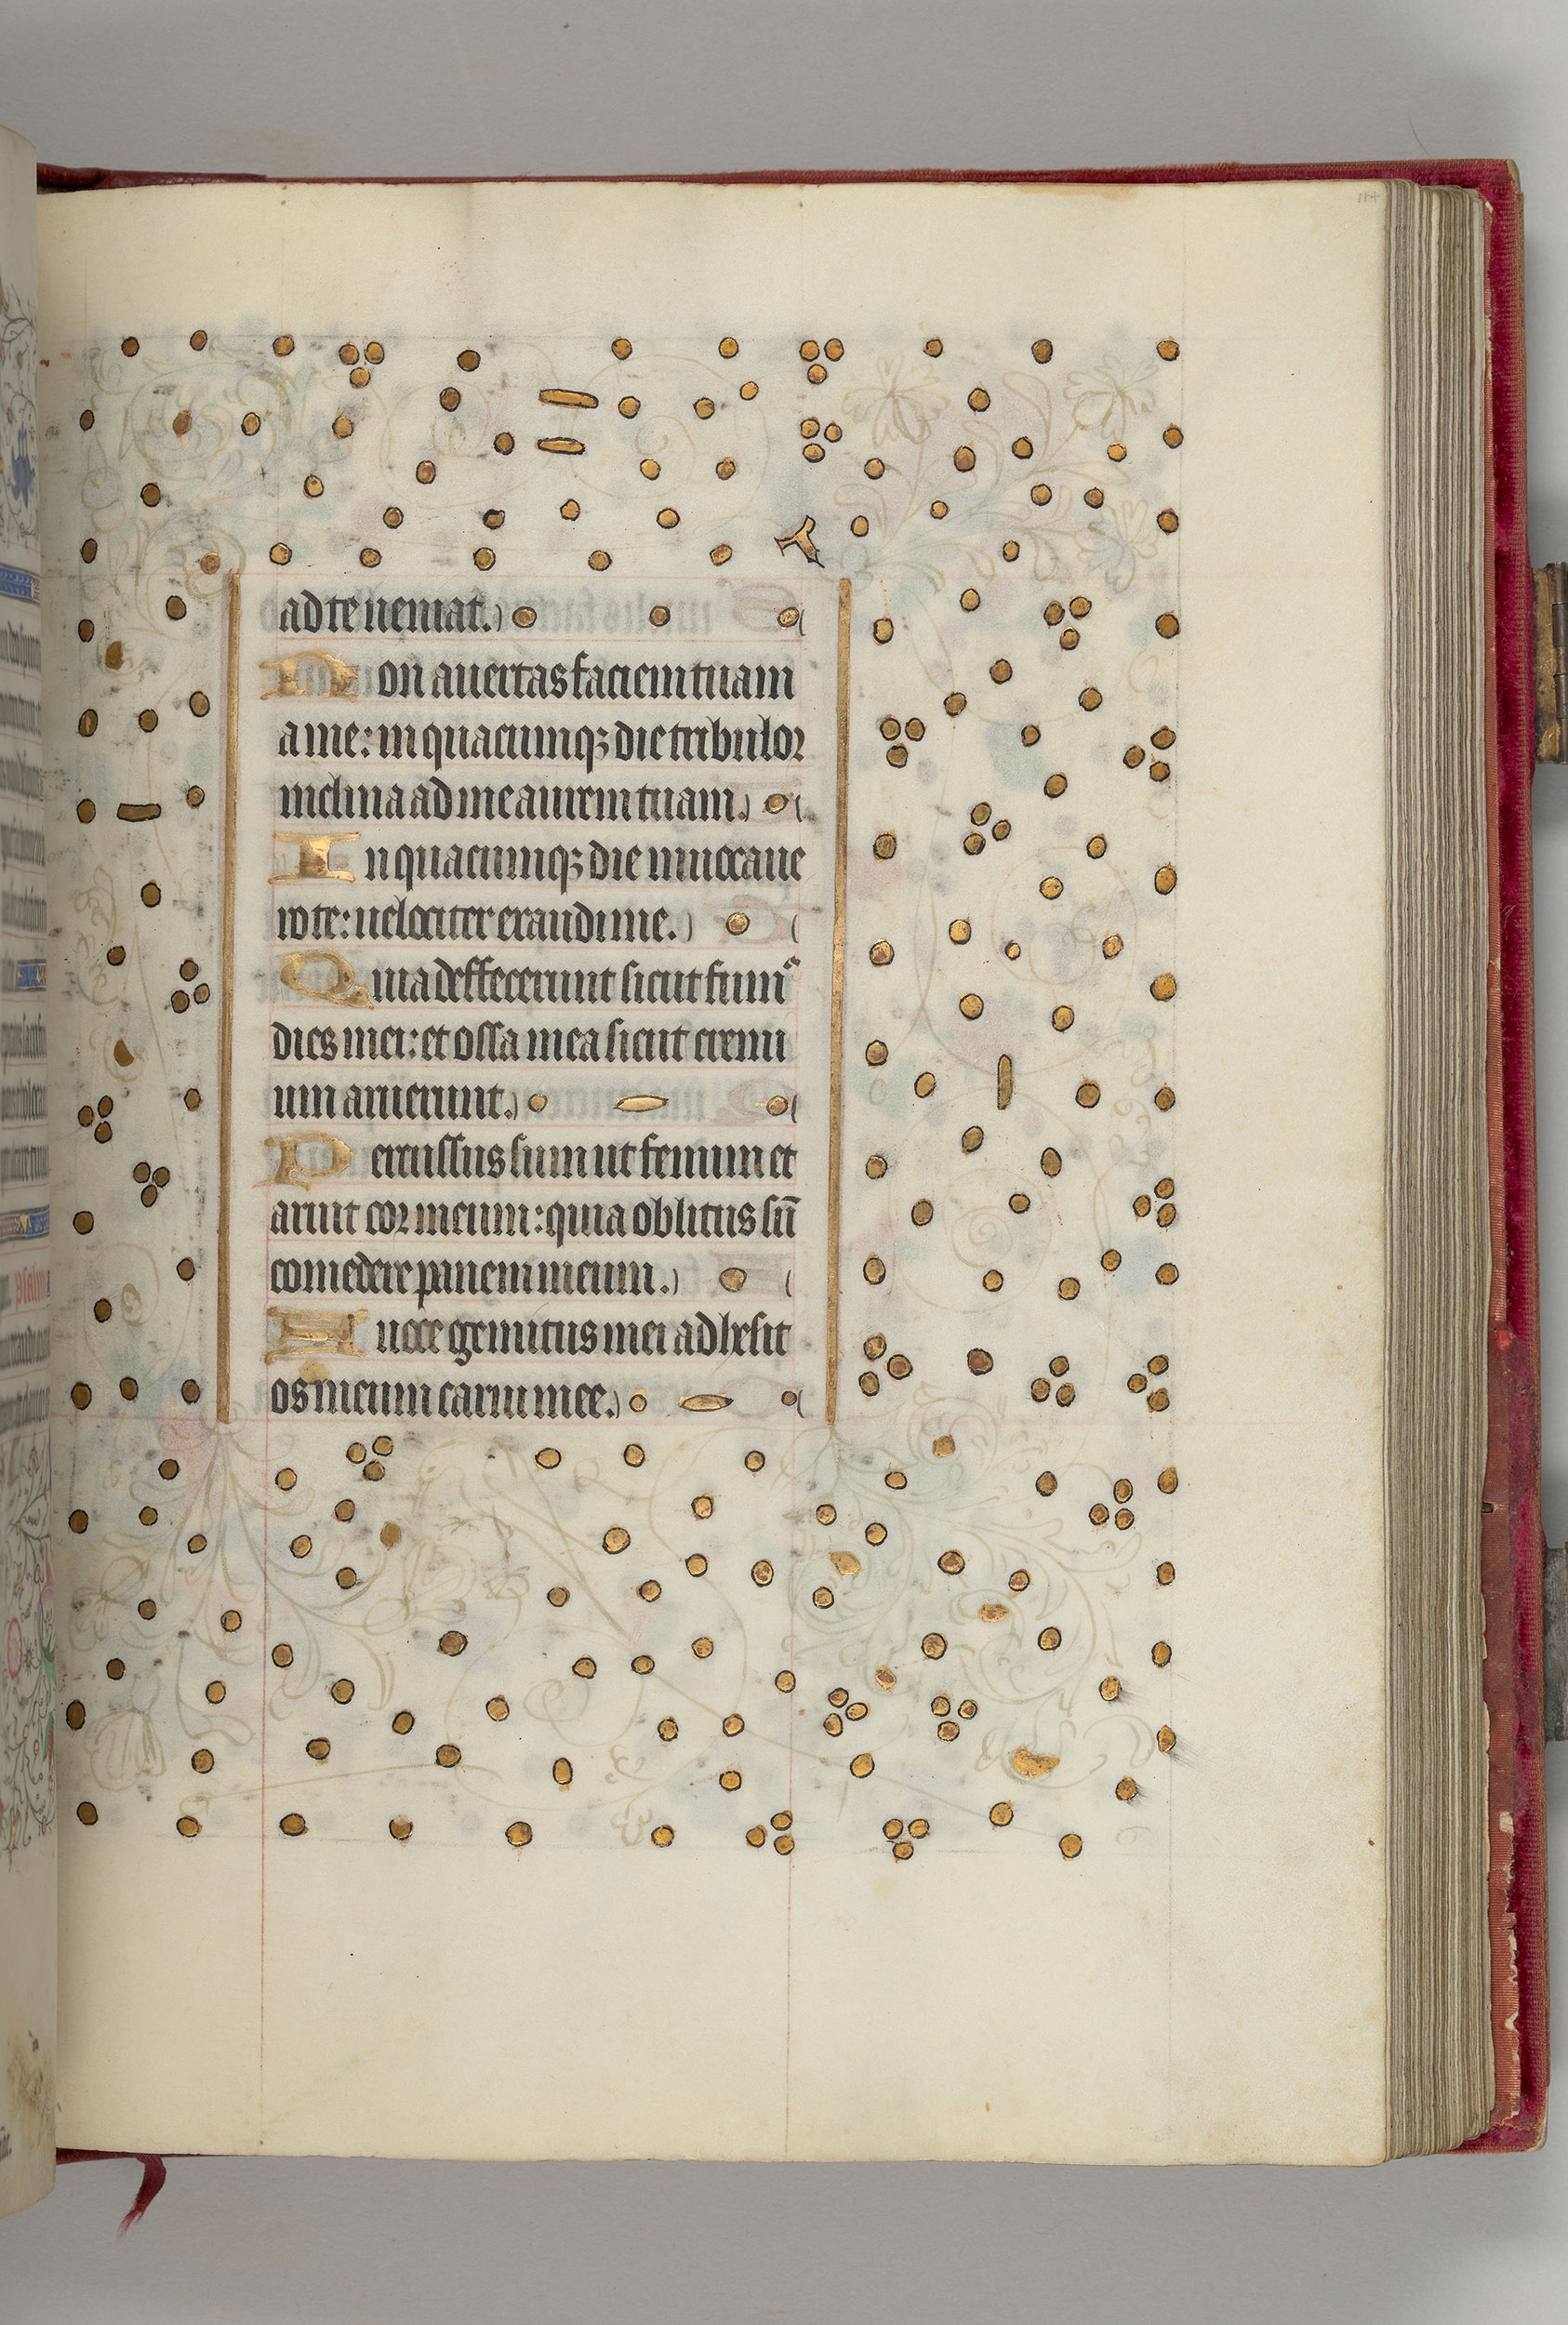 ad te ueniat.
Non auertas faciem tuam
a me: in quacumqꝫ die tribulor
inclina ad me aurem tuam.
In quacumqꝫ die inuocaue
ro te: uelociter exaudi me.
Quia deffecerunt sicut fumꝰ
dies mei: et ossa mea sicut cremi
um aruerunt.
Percussus sum ut fenum et
aruit cor meum: quia oblitus sū
comedere panem meum.
A uoce gemitus mei adhesit
os meum carni mee.